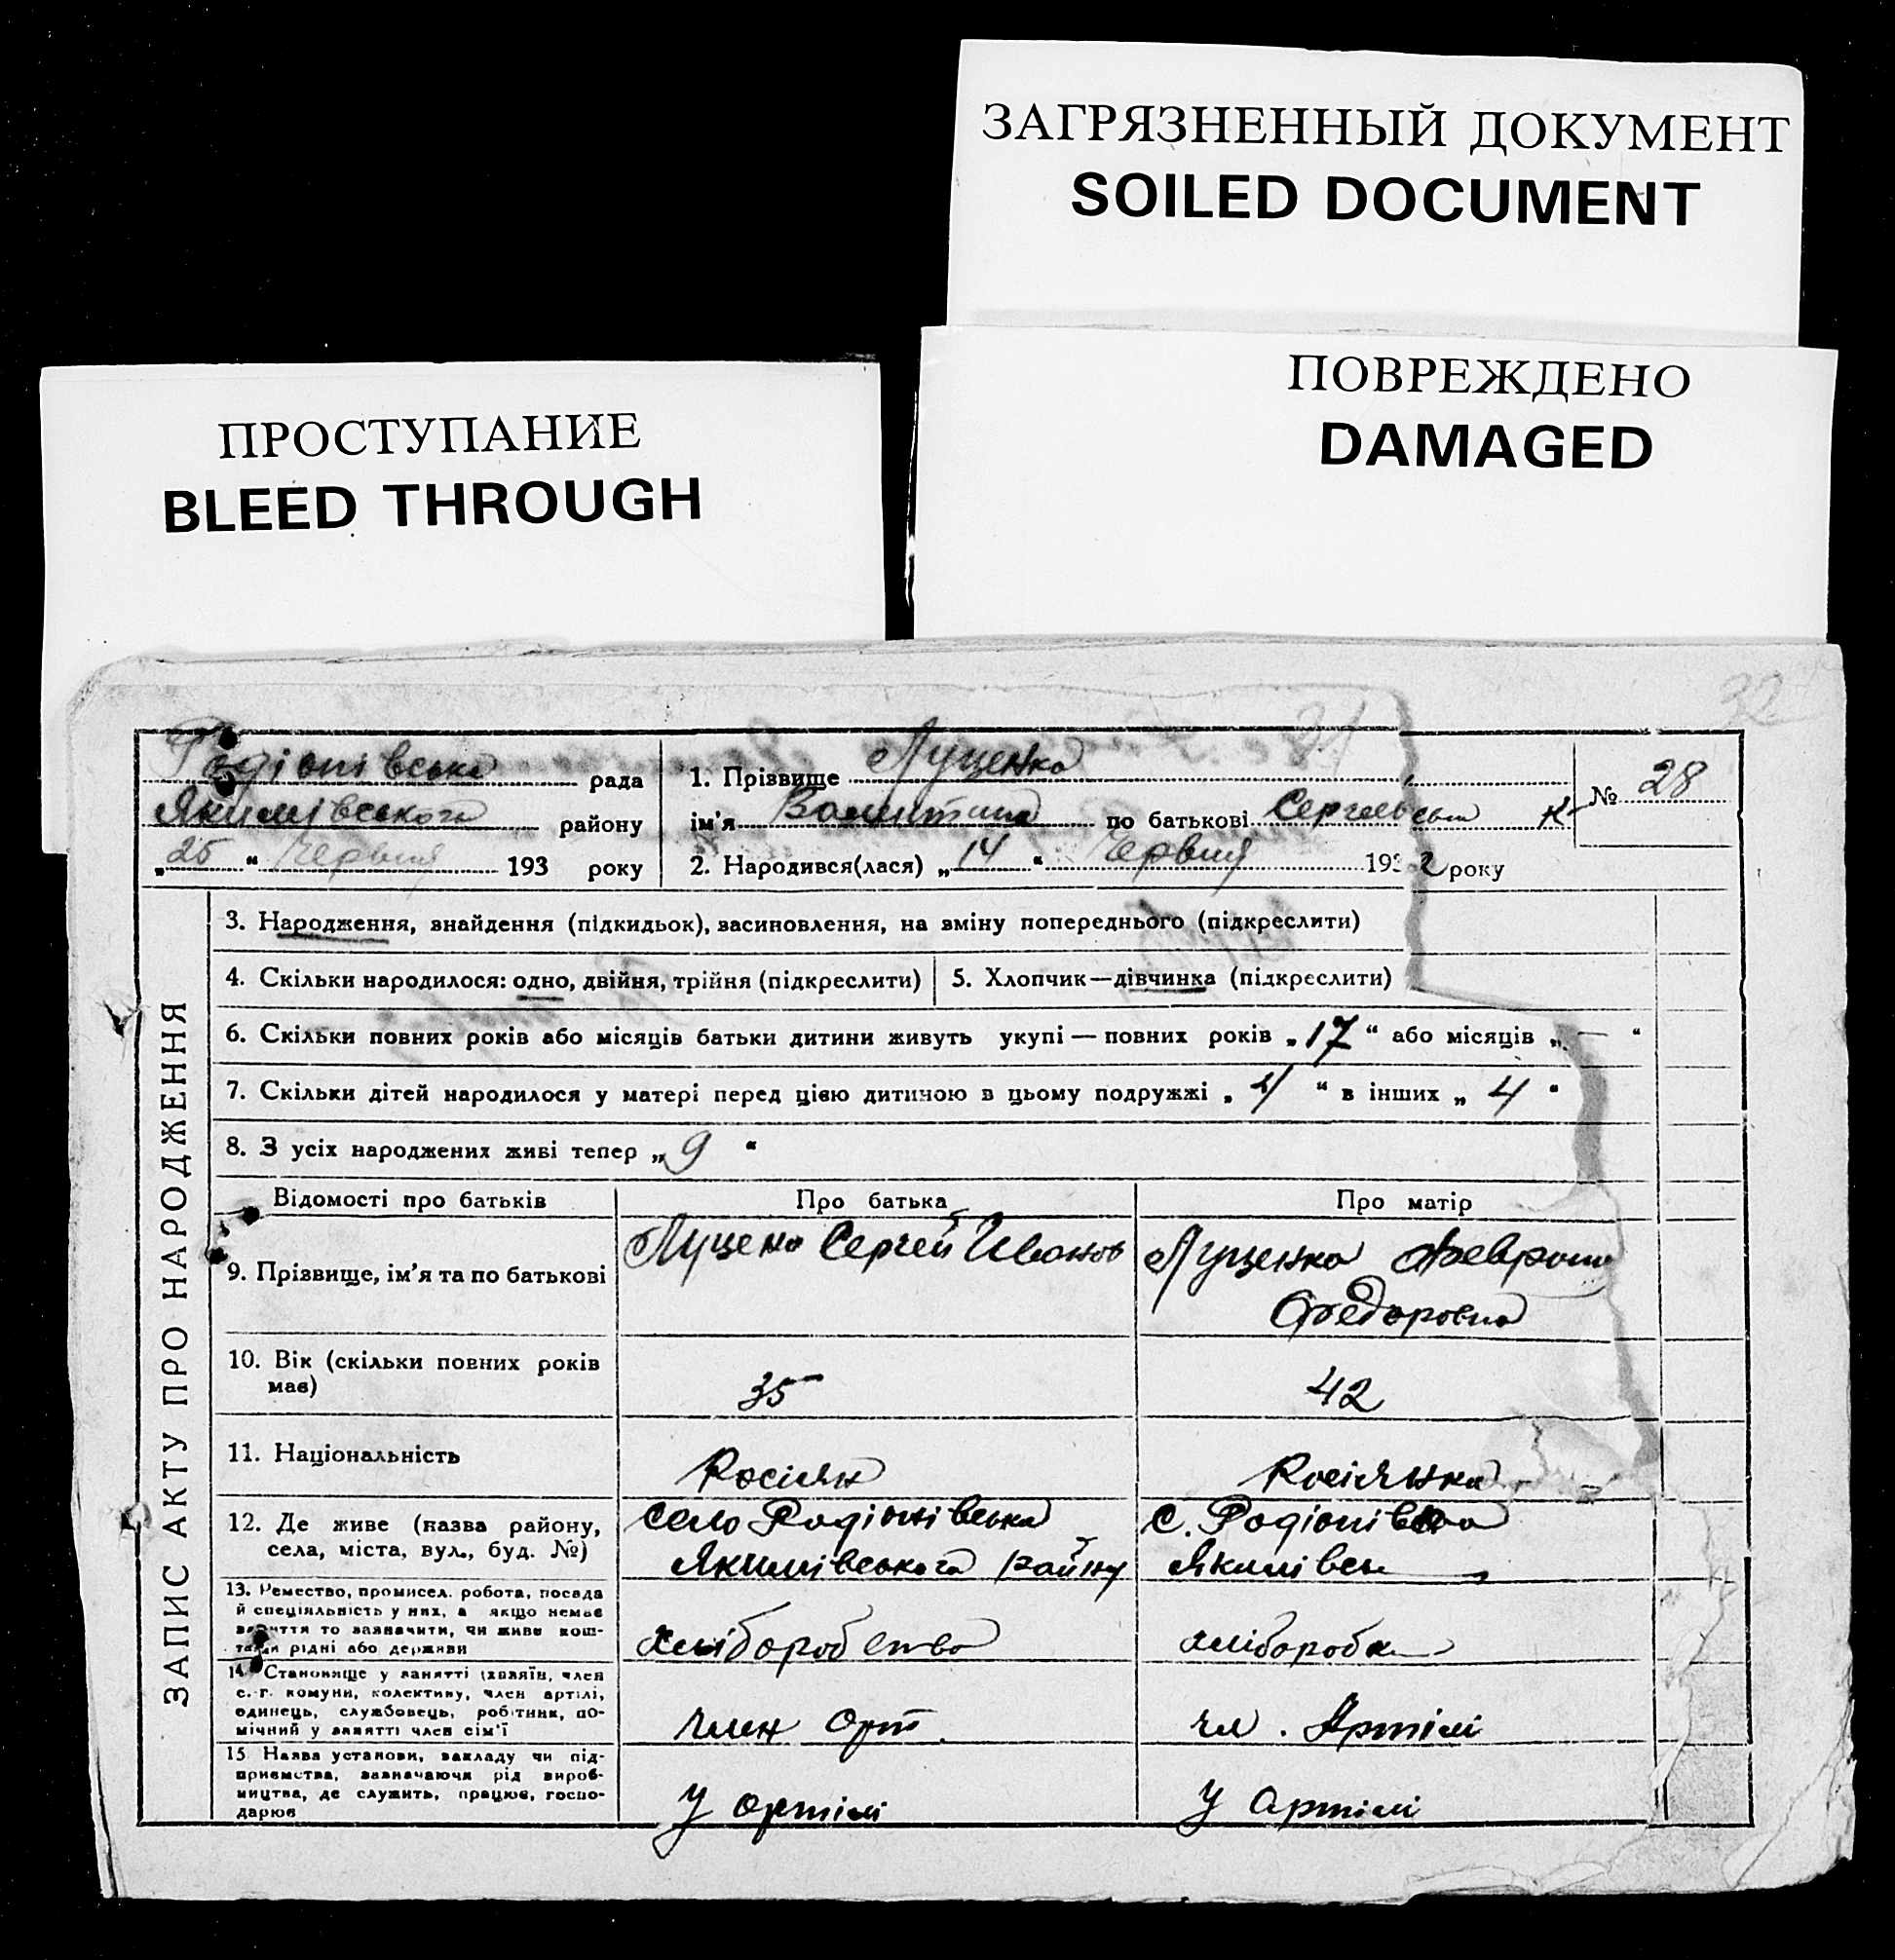 ЗАГРЯЗНЕННЫЙ ДОКУМЕНТ
SOILED DOCUMENT
ПОВРЕЖДЕНО
DAMAGED
ПРОСТУПАНИЕ
BLEED THROUGH
32
Родіонівська рада
Якимівського району
„25“ Червня 193 року
1. Прізвище Луценко
ім'я Валентина по батькові
2. Народився(лася) „14“ Червня 1932 року
№ 28
ЗАПИС АКТУ ПРО НАРОДЖЕННЯ
3. Народження, знайдення (підкидьок), засиновлення, на зміну попереднього (підкреслити)
4. Скільки народилося: одно, двійня, трійня (підкреслити)
5. Хлопчик—дівчинка (підкреслити)
6. Скільки повних років або місяців батьки дитини живуть укупі — повних років „17“ або місяців „—“
7. Скільки дітей народилося у матері перед цією дитиною в цьому подружжі „4“ в інших „4“
8. З усіх народжених живі тепер „9“
Відомості про батьків
Про батька
Про матір
9. Прізвище, ім'я та по батькові
Луценко Сергей Иванов
Луценко
Федоровна
10. Вік (скільки повних років
має)
35
42
11. Національність
Росіян
Росіянка
12. Де живе (назва району,
села, міста, вул., буд. №)
село Родіонівська
Якимівського району
с. Родіонівка
Якимівськ
13. Ремество, промисел. робота, посада
й спеціяльність у них, а якщо немає
заняття то зазначити, чи живе кош-
тами рідні або держави
хліборобство
хліборобка
14. Становище у занятті (хазяїн, член
с.-г. комуни, колективу, член артілі,
одинець, службовець, робітник, по-
мічний у занятті член сім'ї
член арт.
чл. Артілі
15. Назва установи, закладу чи під-
приємства, зазначаючи рід вироб-
ництва, де служить, працює, госпо-
дарює
у артілі
у артілі